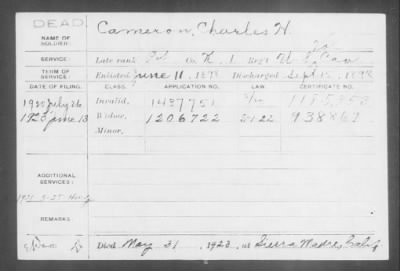 DEAD
NAME OF SOLDIER: Cameron, Charles H.
SERVICE: Late rank Co. K, 1 Reg't U Vol Cav
TERM OF SERVICE: Enlisted June 11, 1898 Discharged Sept. 1898
DATE OF FILING. CLASS. APPLICATION NO. LAW. CERTIFICATE NO.
1920 July 26 Invalid, 1437751
1923 June 13 Widow, 1206722 938867
Minor,
ADDITIONAL SERVICES:
REMARKS:
Died May 31, 1923, at Sierra Madre, Calif